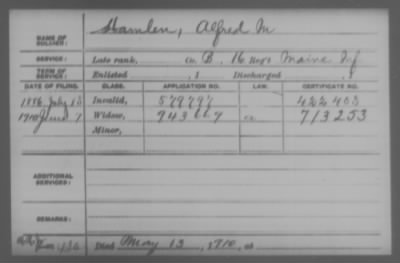 NAME OF SOLDIER: Hamlen, Alfred M
SERVICE: Late rank, Co. B, 16 Reg't Maine Inf
TERM OF SERVICE: Enlisted , 1 Discharged , 1
DATE OF FILING. CLASS. APPLICATION NO. LAW. CERTIFICATE NO.
July 13 Invalid, 579797 422403
1910 June 7 Widow, 943667 713253
Minor,
ADDITIONAL SERVICES:
REMARKS:
Died May 13, 1910, at